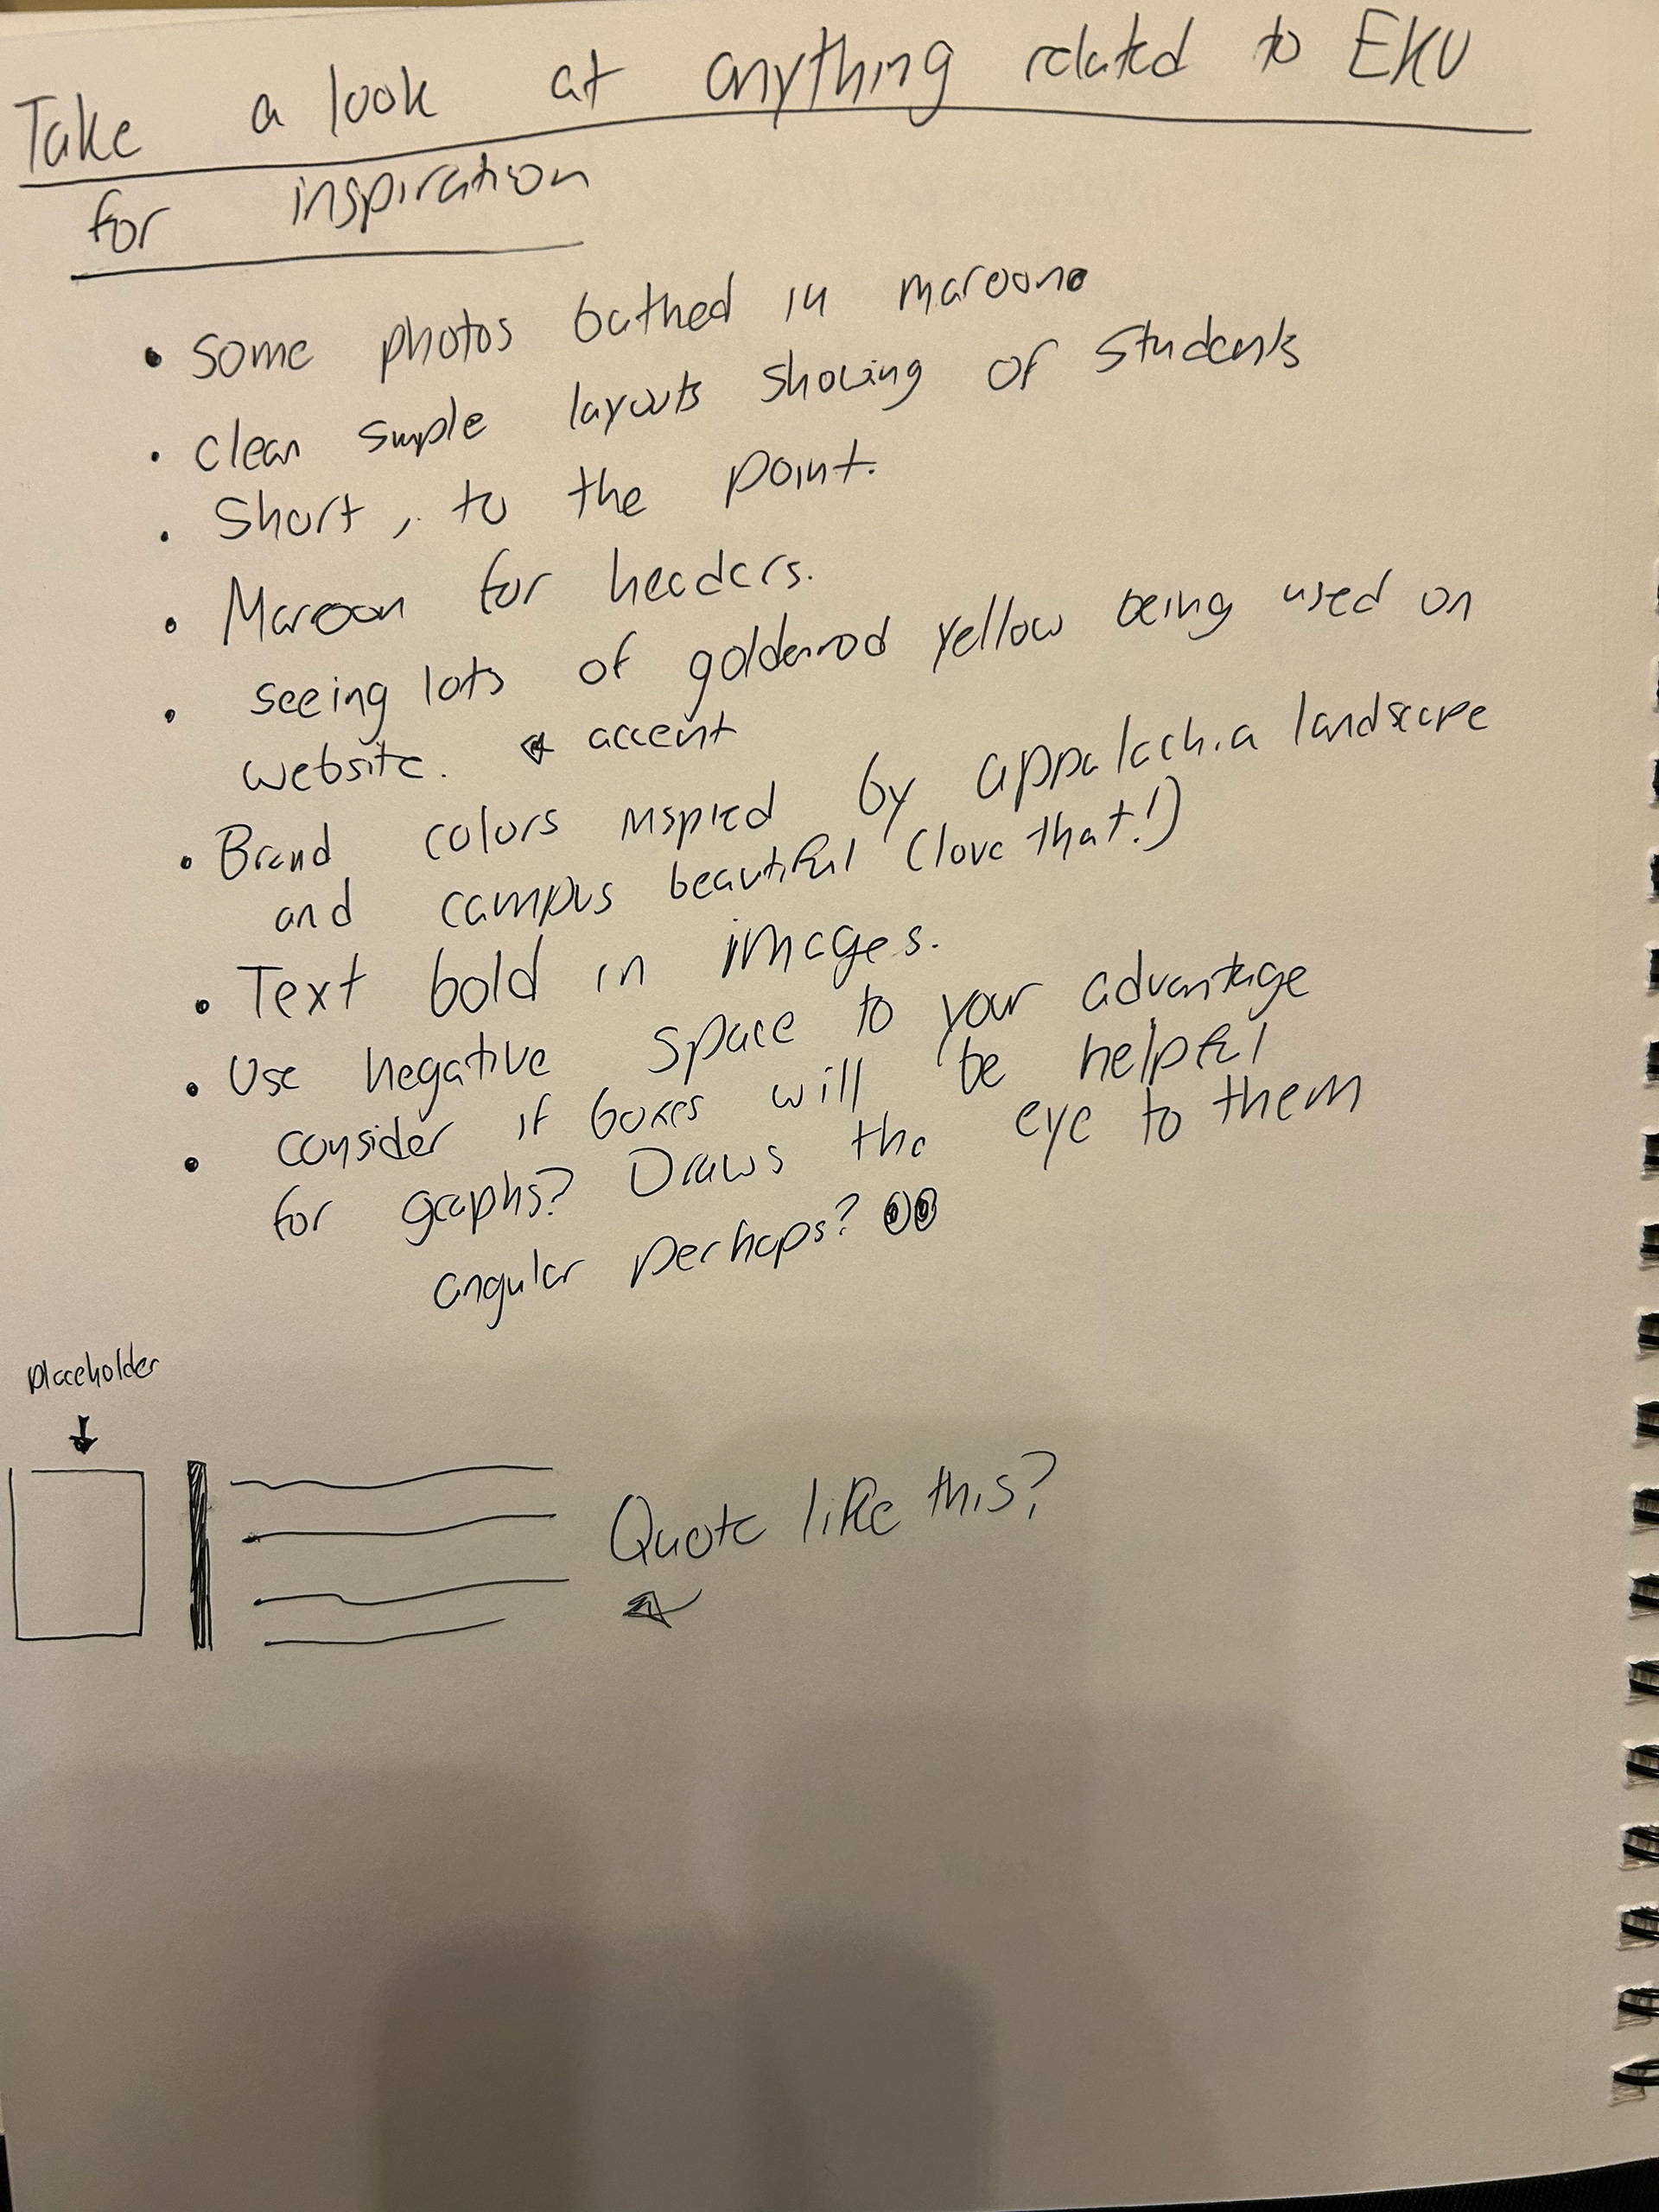 Take a look at anything related to EKU
for inspiration
• Some photos bathed in maroon.
• Clean simple layouts showing of students
• Short, to the point.
• Maroon for headers.
• seeing lots of goldenrod yellow being used on
website. accent
• Brand colors inspired by appalachia landscape
and campus beautiful (love that!)
• Text bold in images.
• Use negative space to your advantage
• consider if boxes will be helpful
for graphs? Draws the eye to them
angular perhaps?
Placeholder
Quote like this?